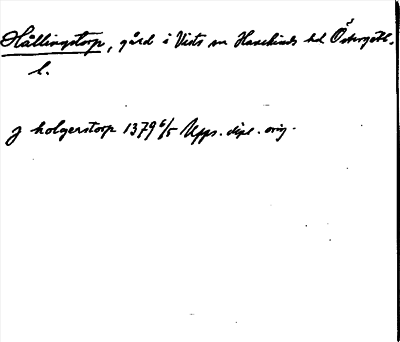 Hållingstorp, gård i Vists sn Hanekinds hd Östergötl.
l.
J holgerstorp 1379 6/5 Upps. dipl. orig.